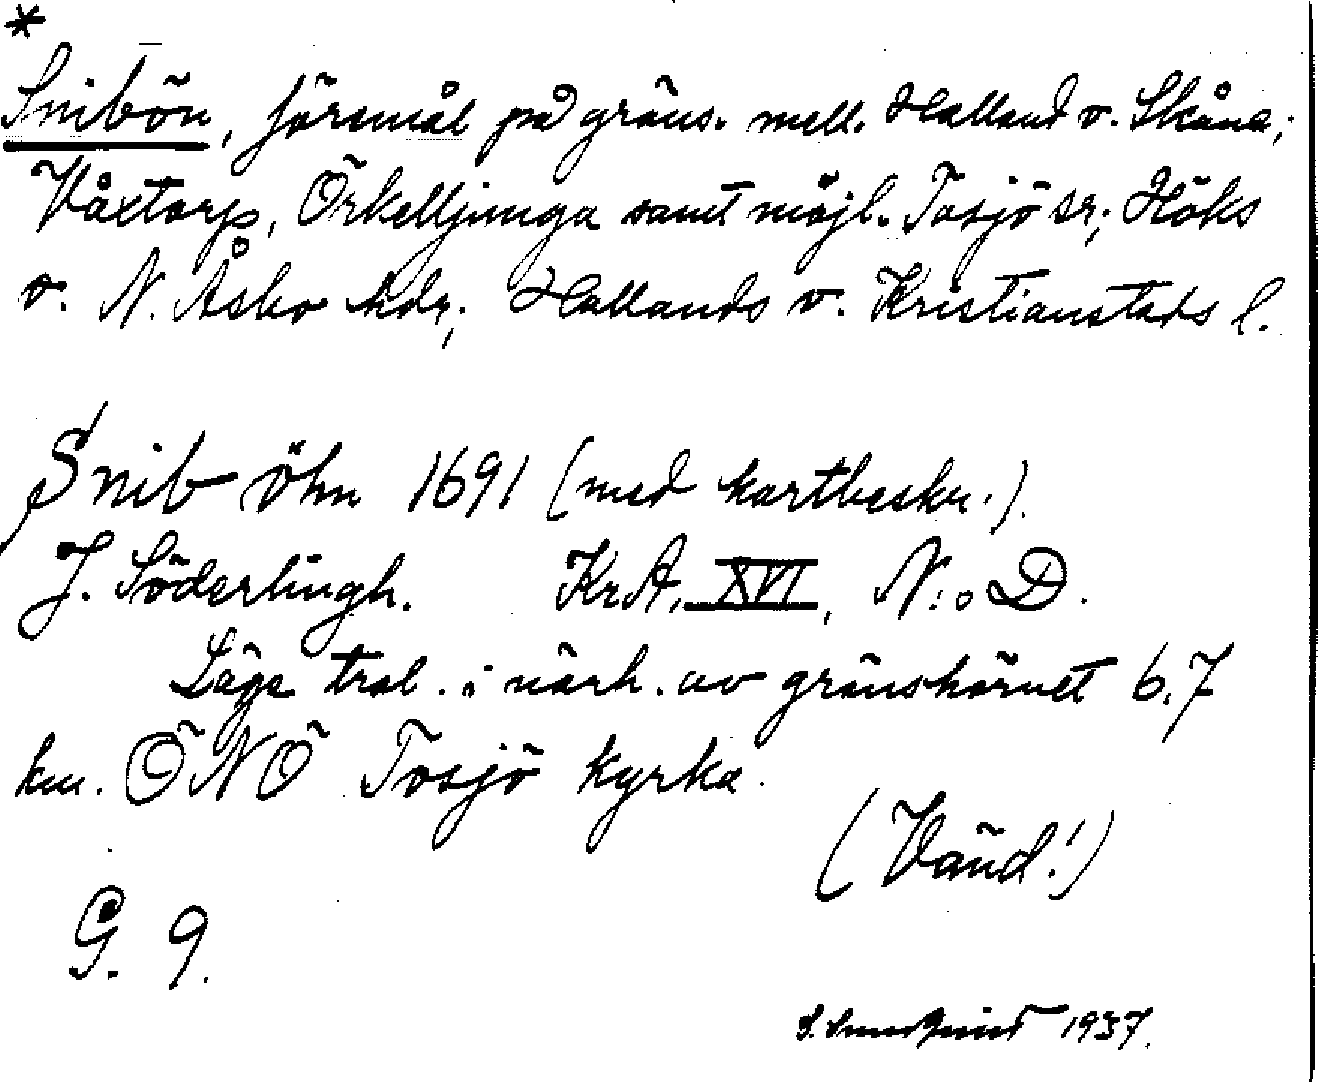 *
Snibön, föremål på gräns. mell. Halland o. Skåne;
Våxtorp, Örkelljunga samt möjl. Tosjö sr; Höks
o. N. Åsbo hdr; Hallands o. Kristianstads l.
Snib öhn 1691 (med kartbeskr.).
J. Söderlingh. Kr.A. XVI, N:o D.
Läge trol. i närh. av gränshörnet 6.7
km. ÖNÖ Tosjö kyrka.
(Vänd!)
G. 9.
1937.